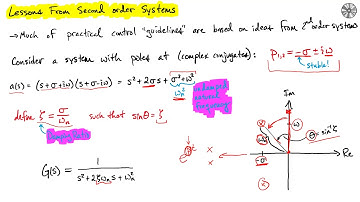 Lessons From Second order Systems
→ Much of practical control "guidelines" are based on ideas from 2nd order systems
Consider a system with poles at (complex conjugates): P₁,₂ = -σ ± iω
stable!
a(s) = (s+σ+iω)(s+σ-iω) = s² + 2σs + σ²+ω²
ωₙ²
undamped natural frequency
define ζ = σ/ωₙ such that sinθ = ζ
damping ratio
G(s) = 1 / (s² + 2ζωₙs + ωₙ²)
Im
ω
θ = sin⁻¹ζ
Re
-σ